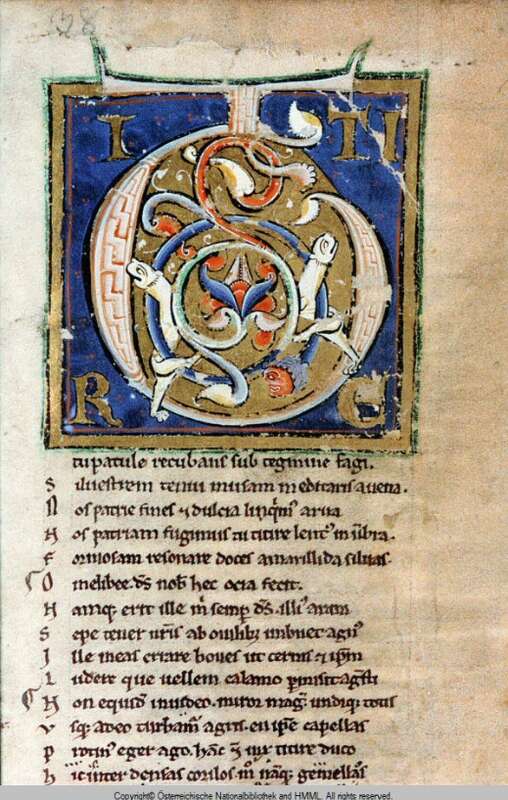 28
I TI
R E
tu patule recubans sub tegmine fagi.
Siluestrem tenui musam meditaris auena.
Nos patrie fines & dulcia linqim᷒ arua
Nos patriam fugimus tu titire lent᷒ in ūbra.
Formosam resonare doces amarillida siluas.
O melibee. d̄s nob̄ hec ocia fecit.
Namq; erit ille m̄ semꝑ d̄s. illi᷒ aram
Sepe tener nr̄is ab ouilib; imbuet agn᷒
Ille meas errare boues ut cernis & ip̄m
Ludere que uellem calamo ꝑmisit agsti
Non equid̄ inuideo. miror mag̅. undiq; totis
Vsq; adeo turbam᷒ agris. en ip̄e capellas
Protin᷒ eger ago. hāc & uix titire duco
Hic inter densas corilos m̊ nāq; gemellos
Copyright© Österreichische Nationalbibliothek and HMML. All rights reserved.